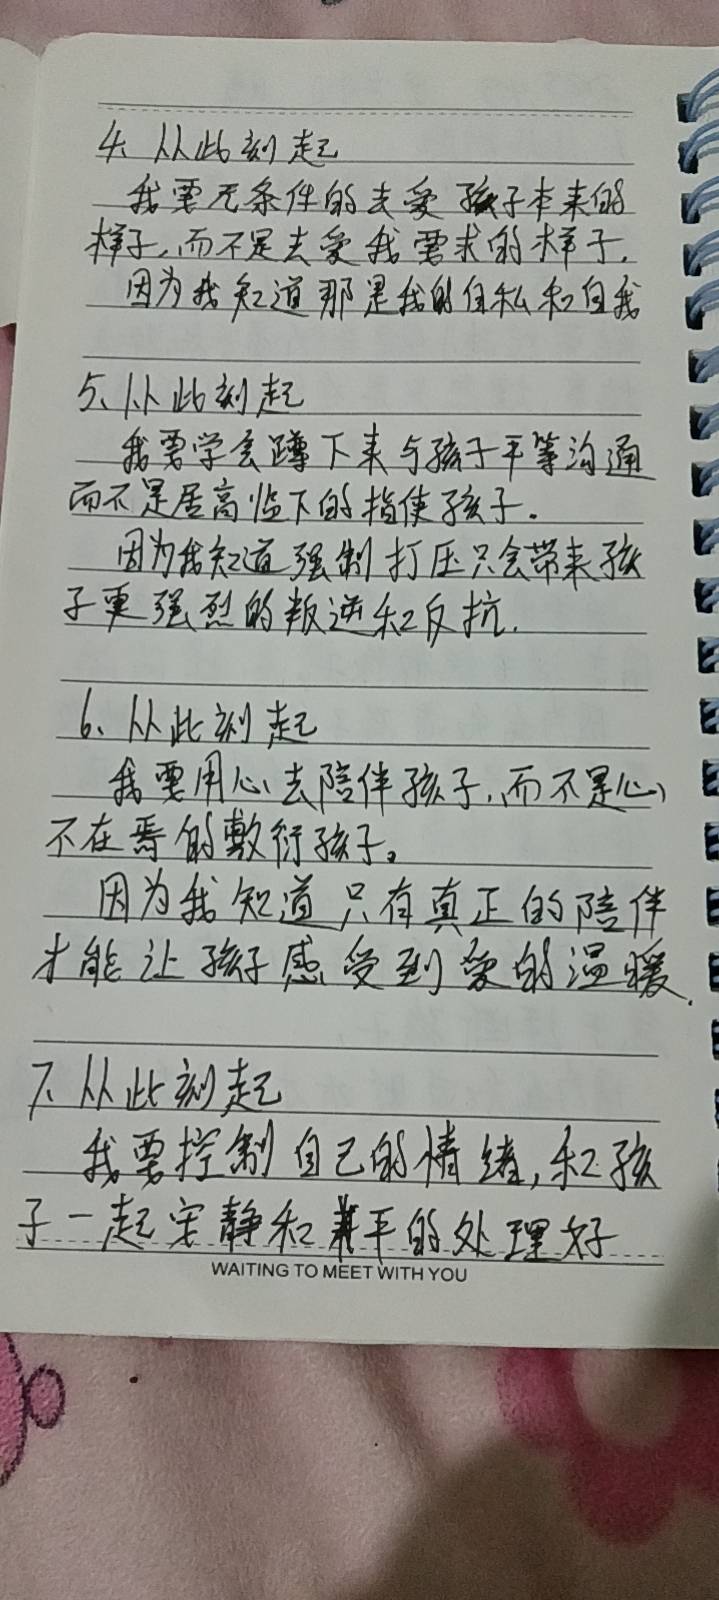 4、从此刻起
我要无条件的去爱孩子本来的
样子,而不是去爱我要求的样子.
因为我知道那是我的自私和自我
5、从此刻起
我要学会蹲下来与孩子平等沟通
而不是居高临下的指使孩子。
因为我知道强制打压只会带来孩
子更强烈的叛逆和反抗.
6、从此刻起
我要用心去陪伴孩子,而不是心
不在焉的敷衍孩子。
因为我知道只有真正的陪伴
才能让孩子感受到爱的温暖.
7、从此刻起
我要控制自己的情绪,和孩
子一起安静和平的处理好
WAITING TO MEET WITH YOU